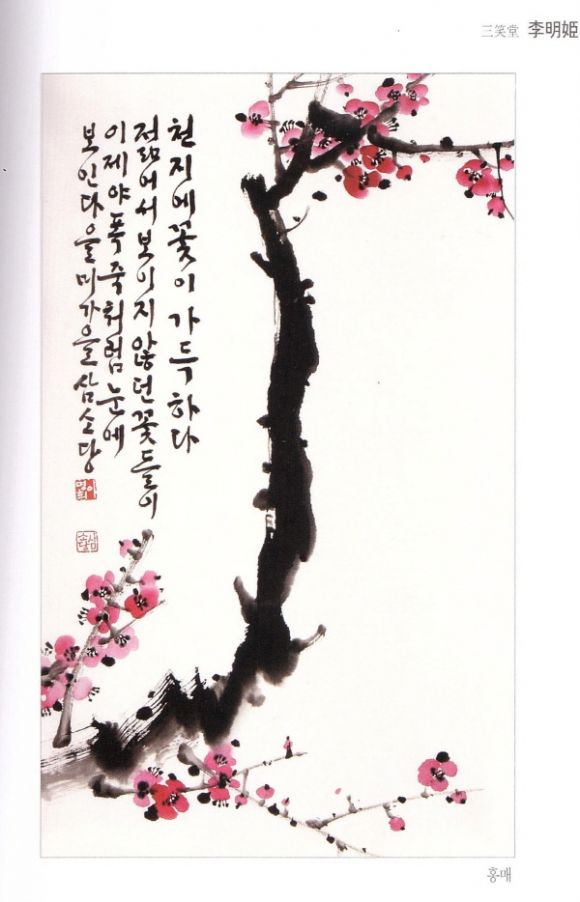 三笑堂 李明姬
천지에꽃이 가득하다
젊어서보이지않던꽃들이
이제야폭죽처럼눈에
보인다을미가을삼소당
이명희
삼소당
홍매